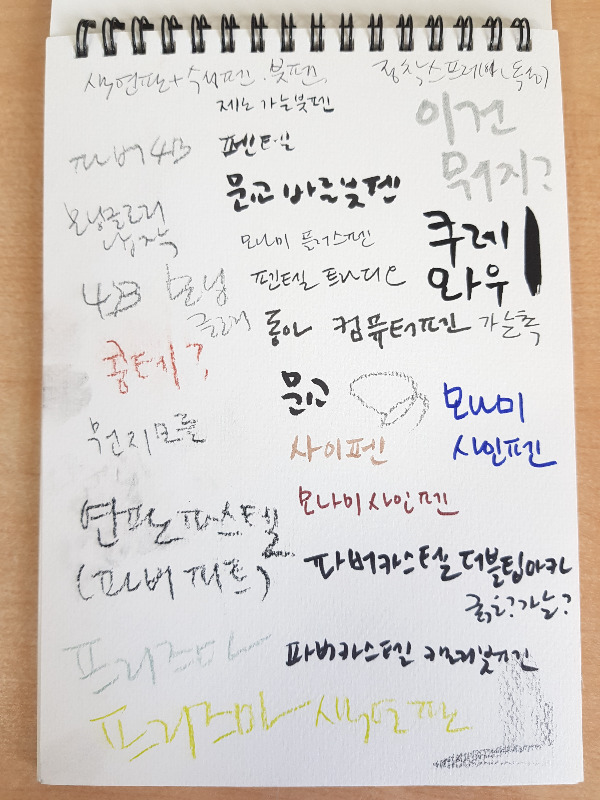 색연필+수성펜.붓펜 정착스프레이(독성)
제노 가는붓펜
이건
뭐지?
파버 4B
펜텔
문교 바른붓펜
모닝글로리
모나미 플러스펜
쿠레
와우
4B 모닝
글로리
펜텔 트라디오
동아 컴퓨터펜 가는촉
콩테?
문교
모나미
사인펜
뭔지모를
사이펜
모나미사인펜
연필파스텔
(파버 피트)
파버카스텔 더블팁마카
굵은?가는?
프리즈마
파버카스텔 캘리붓펜
프리즈마 색연필